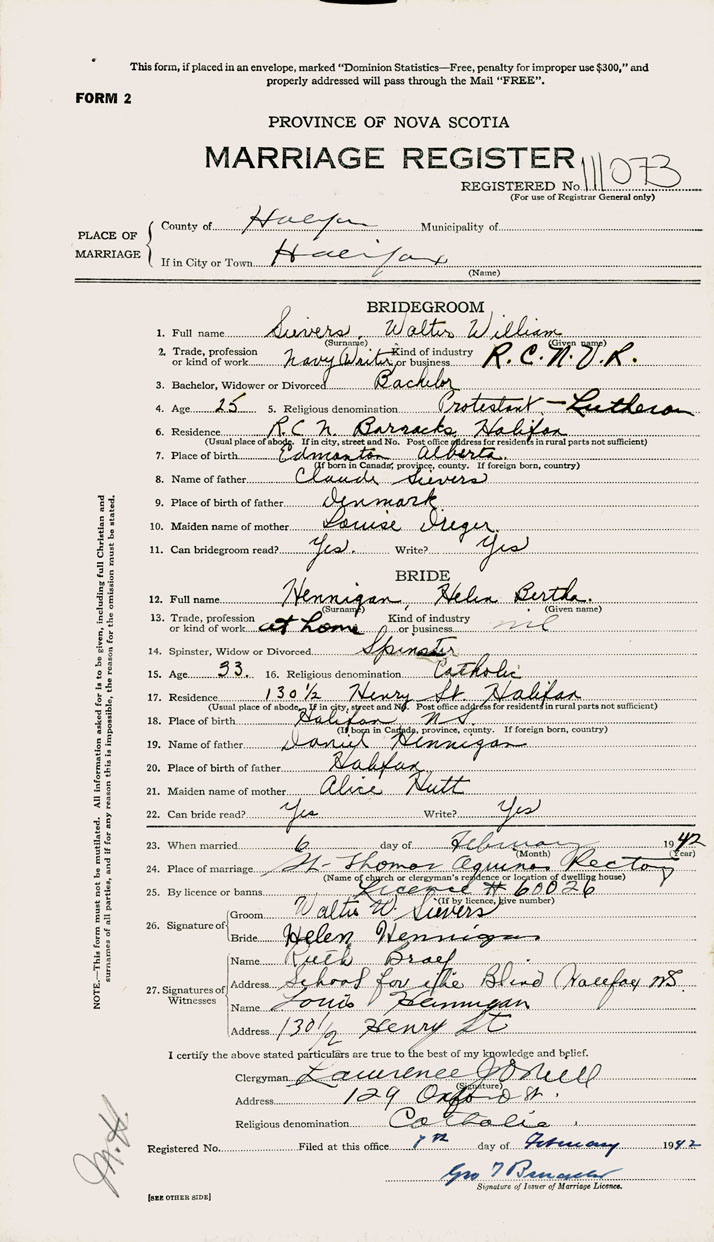 This form, if placed in an envelope, marked "Dominion Statistics—Free, penalty for improper use $300," and
properly addressed will pass through the Mail "FREE".
FORM 2
PROVINCE OF NOVA SCOTIA
MARRIAGE REGISTER
REGISTERED No. 111073
(For use of Registrar General only)
PLACE OF MARRIAGE
County of Halifax Municipality of
If in City or Town Halifax
(Name)
BRIDEGROOM
1. Full name Sievers, Walter William
(Surname) (Given name)
2. Trade, profession or kind of work Navy Writer Kind of industry or business R.C.N.V.R.
3. Bachelor, Widower or Divorced Bachelor
4. Age 25 5. Religious denomination Protestant - Lutheran
6. Residence R.C.N. Barracks Halifax
(Usual place of abode. If in city, street and No. Post office address for residents in rural parts not sufficient)
7. Place of birth Edmonton Alberta.
(If born in Canada, province, county. If foreign born, country)
8. Name of father Claude Sievers
9. Place of birth of father Denmark
10. Maiden name of mother Louise Dreger
11. Can bridegroom read? Yes. Write? Yes
BRIDE
12. Full name Hennigan, Helen Bertha.
(Surname) (Given name)
13. Trade, profession or kind of work at home Kind of industry or business nil
14. Spinster, Widow or Divorced Spinster
15. Age 33. 16. Religious denomination Catholic
17. Residence 130½ Henry St. Halifax
(Usual place of abode. If in city, street and No. Post office address for residents in rural parts not sufficient)
18. Place of birth Halifax N.S.
(If born in Canada, province, county. If foreign born, country)
19. Name of father Daniel Hennigan
20. Place of birth of father Halifax
21. Maiden name of mother Alice Hutt
22. Can bride read? Yes Write? Yes
23. When married 6 day of February 1942
(Month) (Year)
24. Place of marriage St. Thomas Aquinas Rectory
(Name of church or clergyman's residence or location of dwelling house)
25. By licence or banns Licence # 60026
(If by licence, give number)
26. Signature of
Groom Walter W. Sievers
Bride Helen Hennigan
27. Signatures of Witnesses
Name Ruth
Address School for the Blind Halifax NS.
Name Louis Hennigan
Address 130½ Henry St
I certify the above stated particulars are true to the best of my knowledge and belief.
Clergyman Lawrence J O'Neill
(Signature)
Address 129 Oxford St.
Religious denomination Catholic.
Registered No. Filed at this office 7th day of February 1942
Geo T
Signature of Issuer of Marriage Licence.
[SEE OTHER SIDE]
NOTE.—This form must not be mutilated. All information asked for is to be given, including full Christian and
surnames of all parties, and if for any reason this is impossible, the reason for the omission must be stated.
M.H.